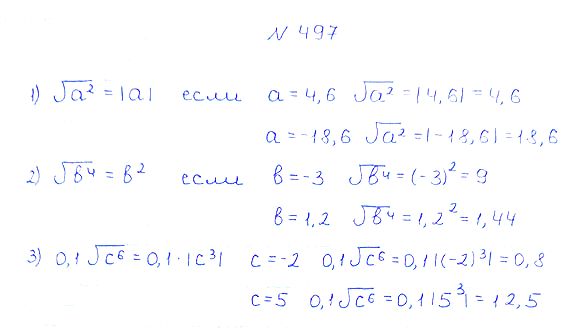 N 497
1) √a² = |a| если a = 4,6 √a² = |4,6| = 4,6
a = -18,6 √a² = |-18,6| = 18,6
2) √b⁴ = b² если b = -3 √b⁴ = (-3)² = 9
b = 1,2 √b⁴ = 1,2² = 1,44
3) 0,1√c⁶ = 0,1·|c³| c = -2 0,1√c⁶ = 0,1|(-2)³| = 0,8
c = 5 0,1√c⁶ = 0,1|5³| = 12,5